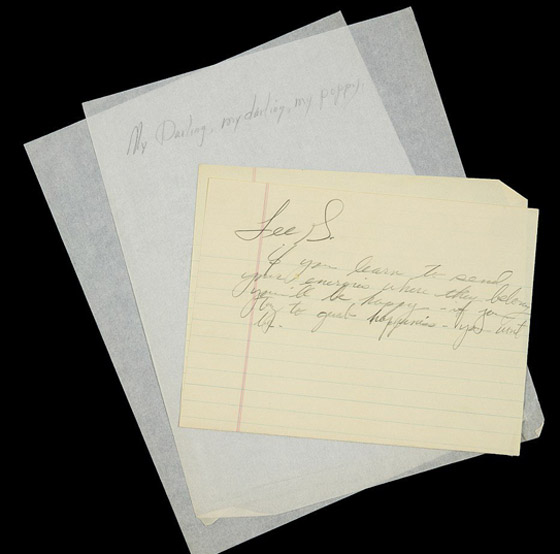 My Darling, my darling, my poppy,
Lee S.
If you learn to send
your energies where they belong
you'll be happy - if you
try to grab happiness - you won't